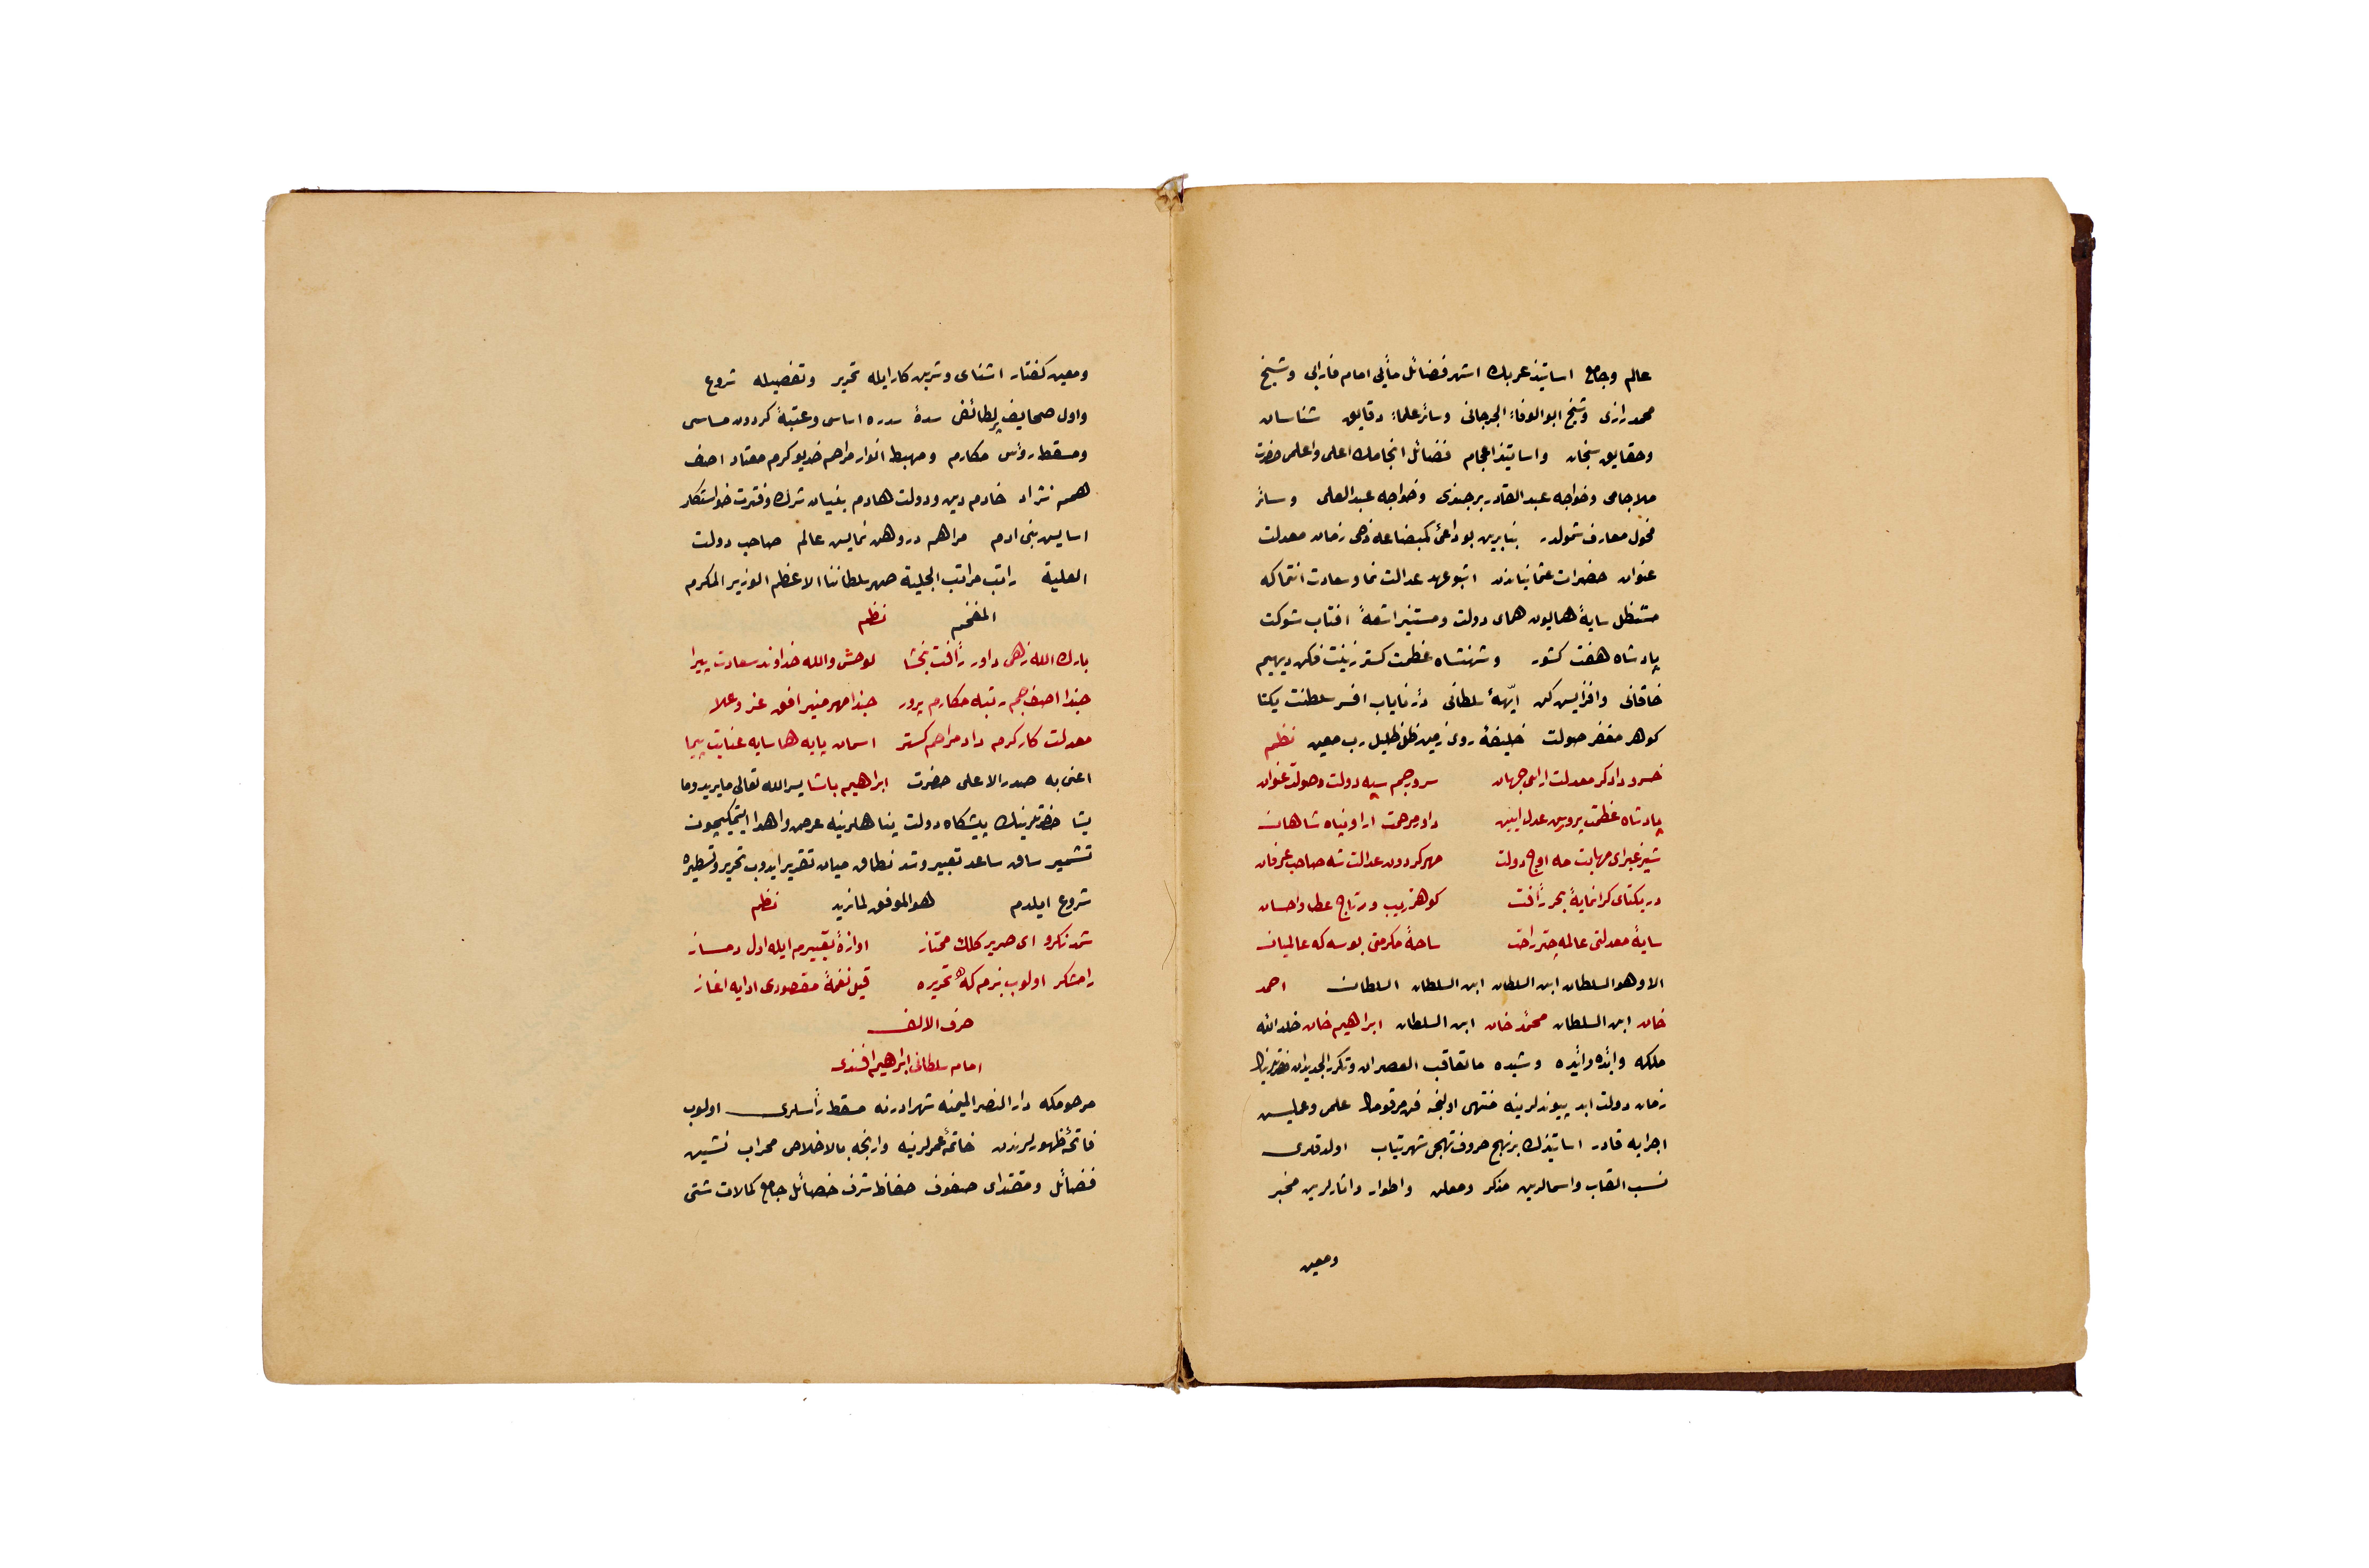 عالم وجامع اساتيذ عربك اشهر فضائل مأبى امام فارابى وشيخ
محمد رازى وشيخ ابو الوفاء الجرجانى وسائر علماء دقايق شناسان
وحقايق سنجان واساتيذ اعجام فضائل انجامك اعلى واعلمى حضرت
ملا جامى وخواجه عبد القادر برجندى وخواجه عبد العلى وسائر
فحول معارف شمولدر بنابرين بو داعئ كمبضاعه دخى زمان معدلت
عنوان حضرات عثمانياندن اشبو عهد عدالت نما وسعادت انتماكه
مستظل سايهٔ همايون هماى دولت ومستنير اشعهٔ افتاب شوكت
پادشاه هفت كشور وشهنشاه عظمت كستر زينت فكن ديهيم
خاقانى وافزايس كن ابّههٔ سلطانى درّ ناياب افسر سلطنت يكتا
كوهر مغفر صولت خليفهٔ روى زمين ظل ظليل رب معين نظم
خسرو دادكر معدلت اراى جهان سرور جم سپه دولت وصولت عنوان
پادشاه عظمت پرور عدل ايين داور مرحمت ارا وپناه شاهان
شير غبراى مهابت مه اوج دولت مهر كردون عدالت شه صاحب عرفان
در يكتاى كرانمايهٔ بحر رأفت كوهر زيب ور تاج عطا واحسان
سايهٔ معدلتى عالمه چتر راحت ساحهٔ مكرمتى بوسه كه عالميان
الا وهو السلطان ابن السلطان ابن السلطان السلطان احمد
خان ابن السلطان محمد خان ابن السلطان ابراهيم خان خلد الله
ملكه وابّده وايّده وشيده ما تعاقب العصران وتكرر الجديدان حضرتلرينك
زمان دولت ابد پيوندلرينه منتهى اولنجه فن مرقومك علمى وعمليسن
اجرايه قادر اساتيذك بر نهج حروف تهجى شهرتياب اولدقلرى
نسب القاب واسمالرين مذكر ومعلن واطوار واثارلرين مخبر
ومعين
ومعين كفتار اشناى وشرين كار ايله تحرير وتفصيله شروع
واول صحايف پر لطائفى سدهٔ سدره اساسى وعتبهٔ كردون مماسى
ومسقط رؤس مكارم ومهبط انوار مراحم خديو كرم معتاد اصف
همم نژاد خادم دين ودولت هادم بنيان شرك وفترت خواستكار
اسايس بنى ادم مراهم در وهن نمايس عالم صاحب دولت
العلية راتب مراتب الجلية صهر سلطاننا الاعظم الوزير المكرم
المفخم نظم
بارك الله زهى داور رأفت بخشا لوحش والله خداوند سعادت پيرا
حبذا اصف جم رتبه مكارم پرور حبذا مهر منير افق عز وعلا
معدلت كار كرم داد مراحم كستر اسمان پايه هما سايه عنايت پيما
اعنى به صدر الاعلى حضرت ابراهيم پاشا يسر الله تعالى ما يريد وما
يشا حضرتلرينك پيشكاه دولت پناهلرينه عرض واهدا ايتمكيچون
تشمير ساق ساعد تعبير وشد نطاق ميان تقرير ايدوب تحرير وتسطيره
شروع ايلدم هو الموفق لما نريد نظم
شمدنكرو اى صرير كلك ممتاز اوازهٔ تعبيرم ايله اول دمساز
رامشكر اولوب بزم كه تحريره قيل نغمهٔ مقصودى ادايه اغاز
حرف الالف
امام سلطانى ابراهيم افندى
مرحومكه دار النصر الميمنه شهر ادرنه مسقط رأسلرى اولوب
فاتحهٔ ظهورلرندن خاتمهٔ عمرلرينه وارنجه بالاخلاص محراب نشين
فضائل ومقتداى صفوف حفاظ شرف خصائل جامع كمالات شتى